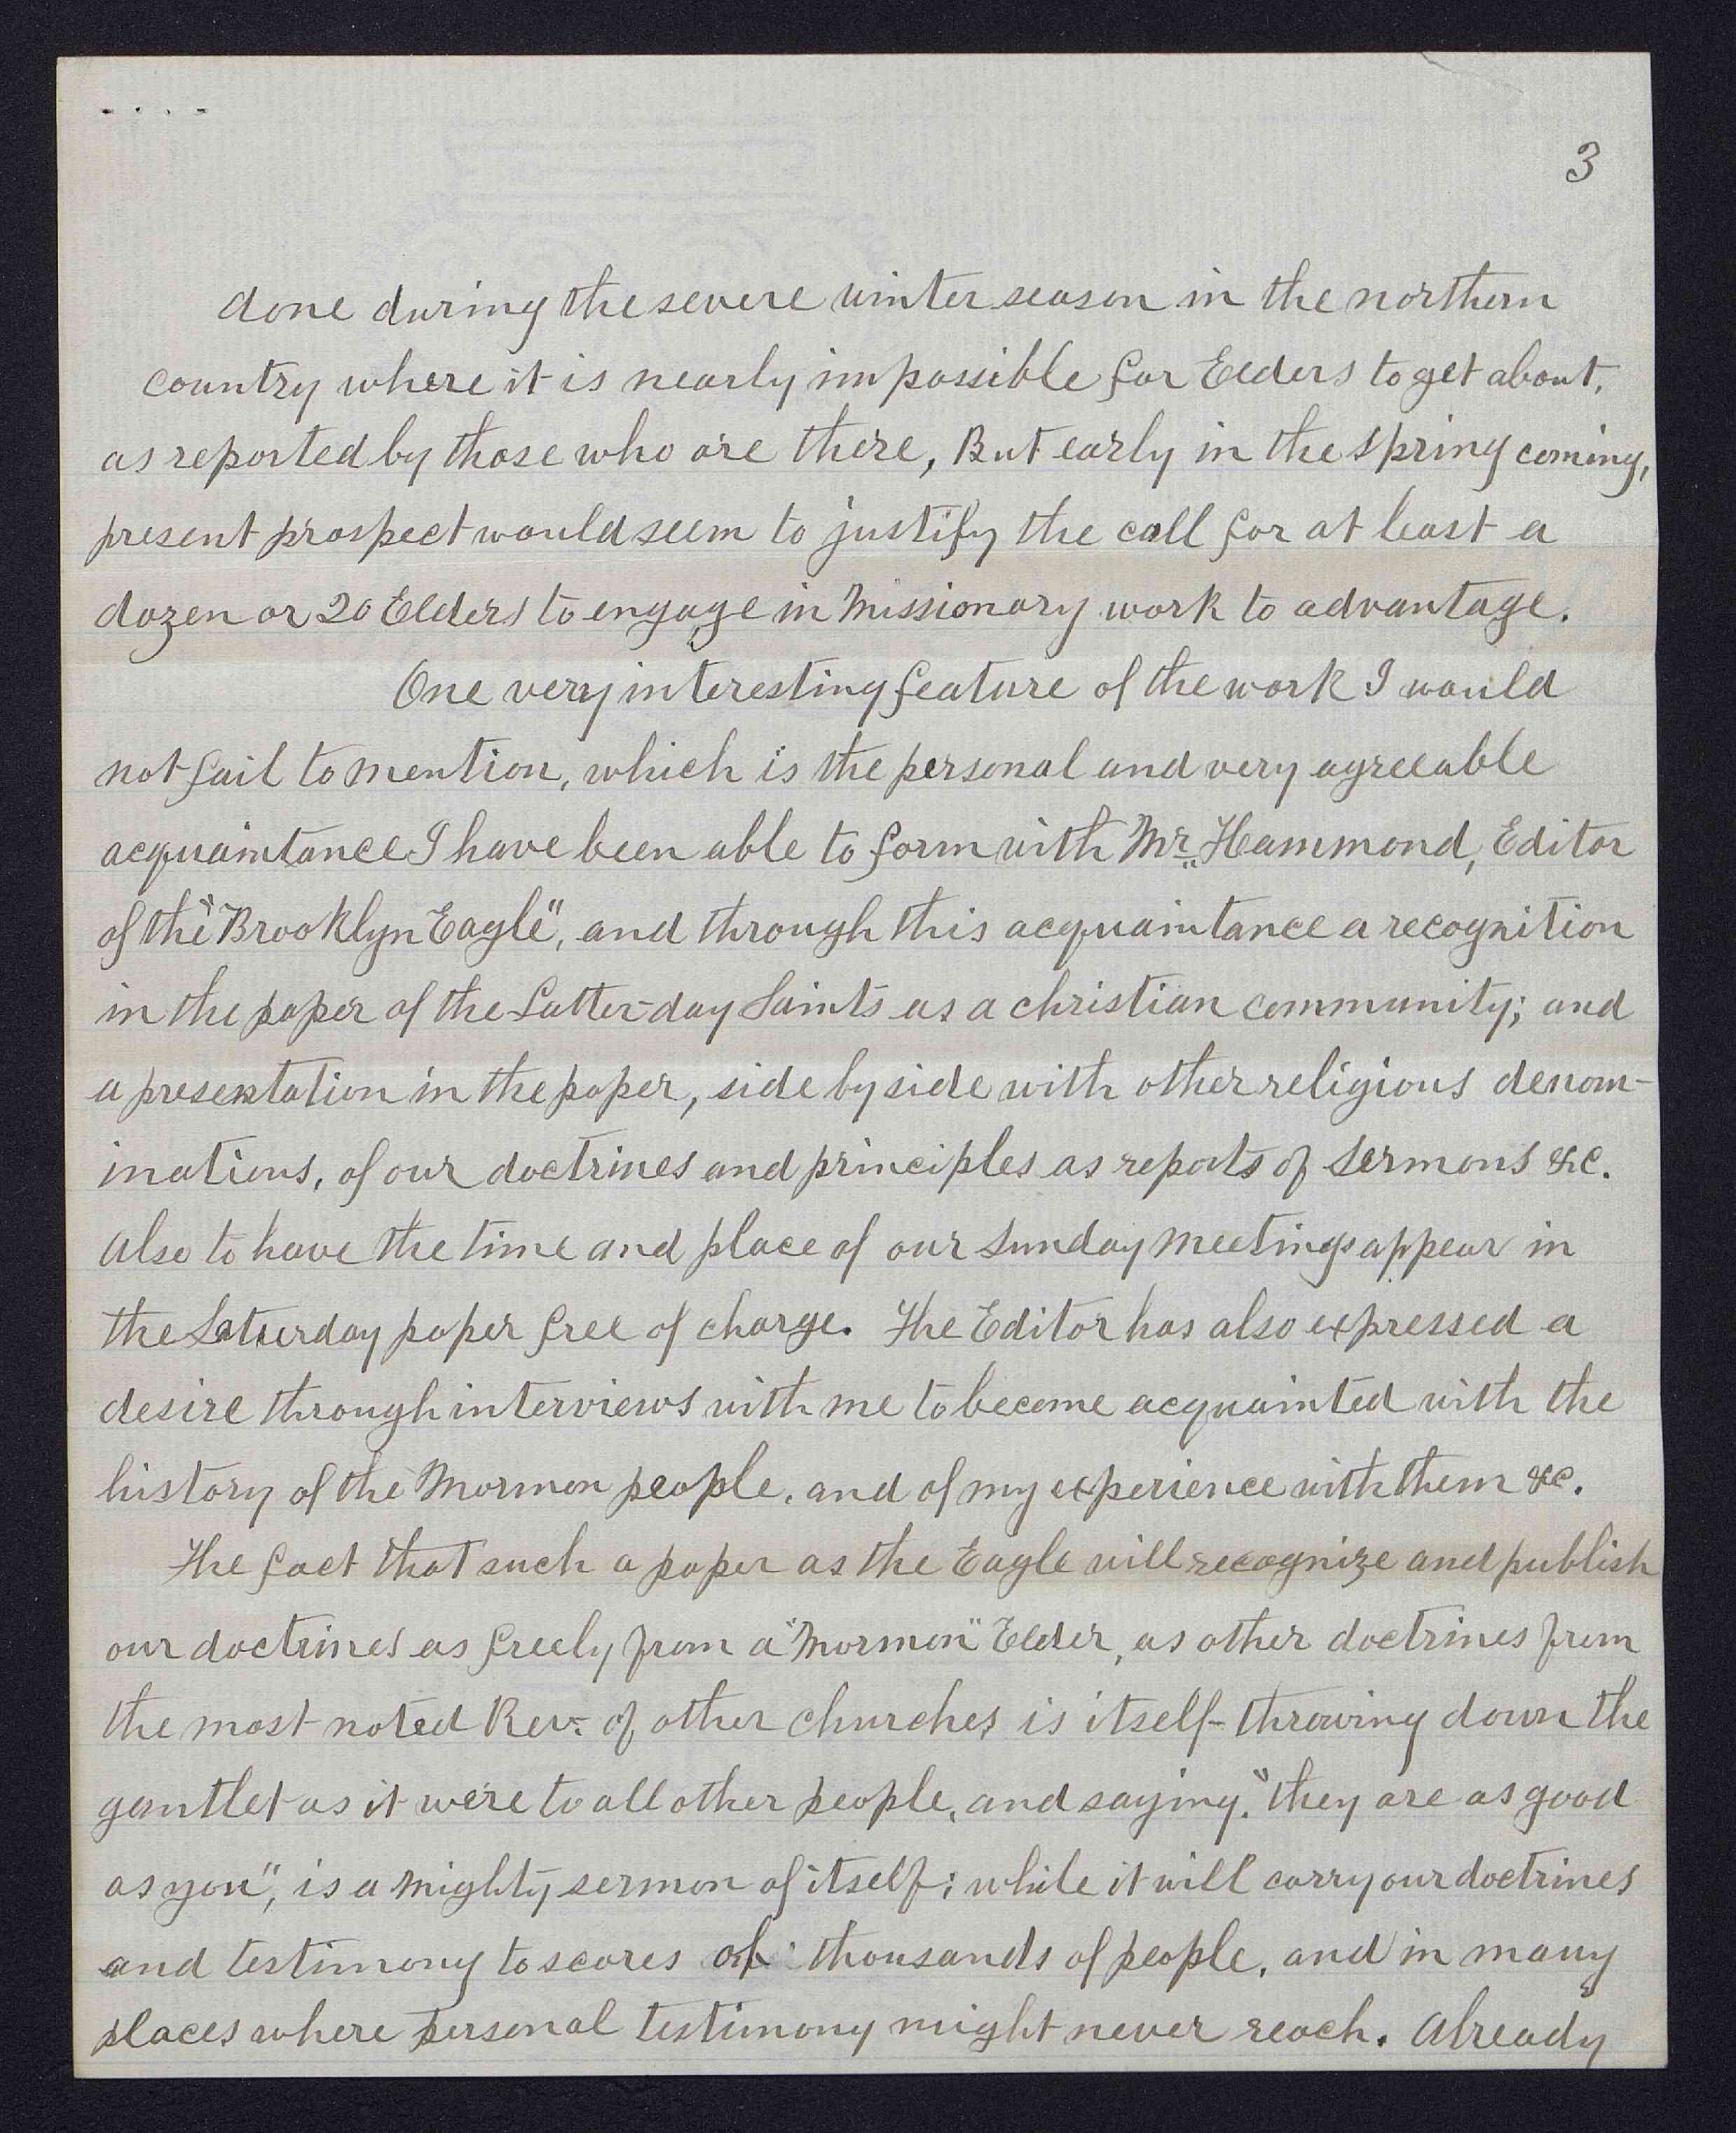 3
done during the severe winter season in the northern
country where it is nearly impossible for Elders to get about,
as reported by those who are there, But early in the Spring coming,
present prospect would seem to justify the call for at least a
dozen or 20 Elders to engage in Missionary work to advantage.
One very interesting feature of the work I would
not fail to mention, which is the personal and very agreeable
acquaintance I have been able to form with Mr. Hammond, Editor
of the "Brooklyn Eagle", and through this acquaintance a recognition
in the paper of the Latter-day Saints as a christian community; and
a presentation in the paper, side by side with other religious denom-
inations, of our doctrines and principles as reports of Sermons &c.
Also to have the time and place of our Sunday Meetings appear in
the Saturday paper free of charge. The Editor has also expressed a
desire through interviews with me to become acquainted with the
history of the Mormon people, and of my experience with them &c.
The fact that such a paper as the Eagle will recognize and publish
our doctrines as freely from a "Mormon" Elder, as other doctrines from
the most noted Rev. of other churches is itself throwing down the
gantlet as it were to all other people, and saying, "they are as good
as you", is a mighty sermon of itself; while it will carry our doctrines
and testimony to scores of thousands of people, and in many
places where personal testimony might never reach. Already